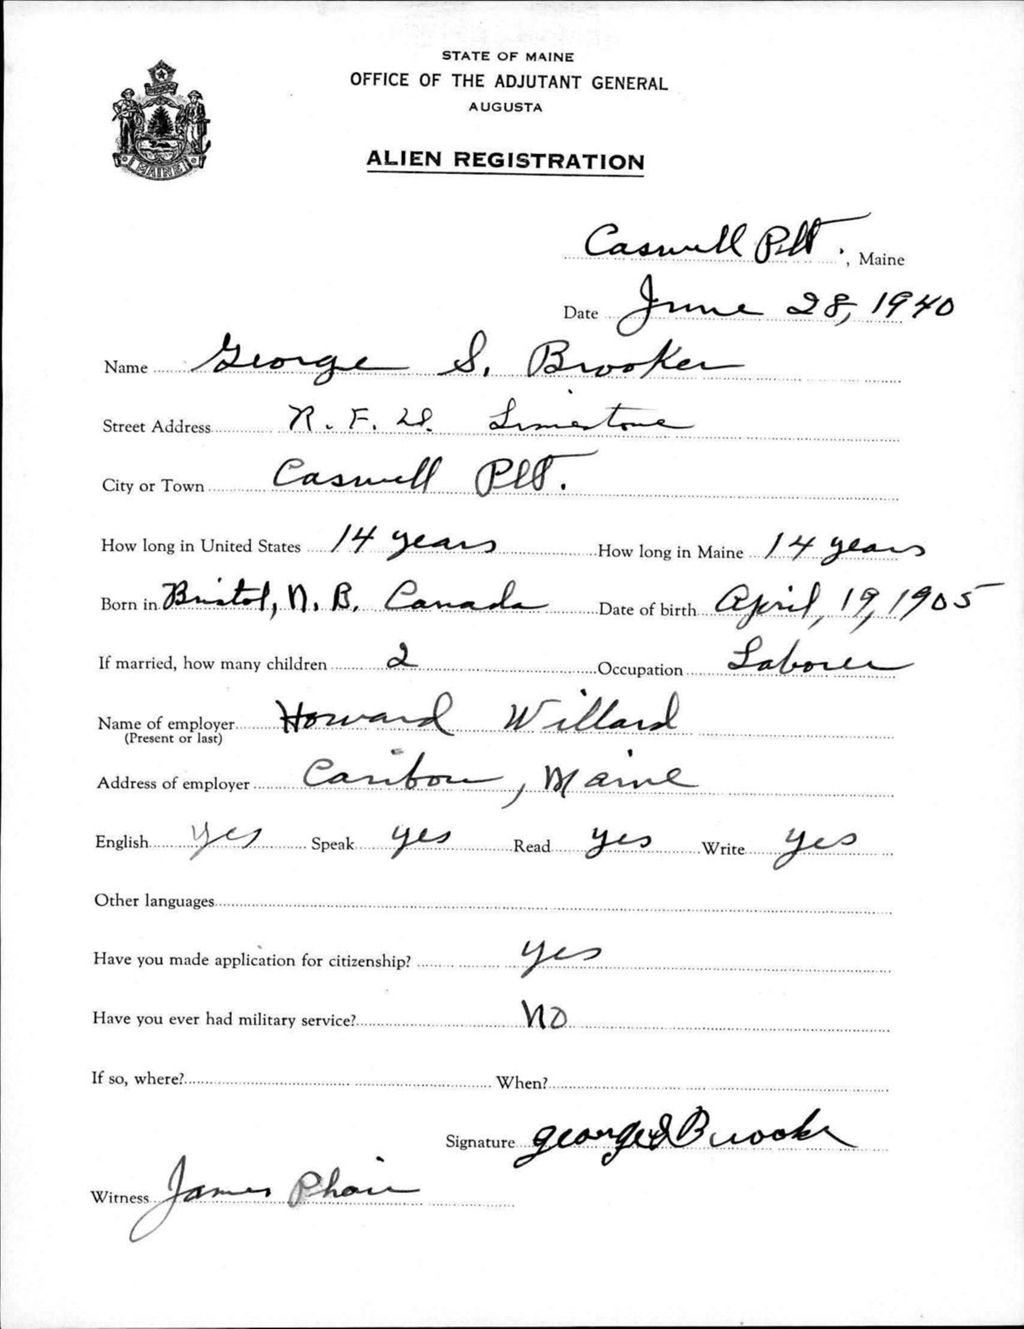 STATE OF MAINE
OFFICE OF THE ADJUTANT GENERAL
AUGUSTA
ALIEN REGISTRATION
MAINE
Caswell Plt., Maine
Date June 28, 1940
Name George S. Brooker
Street Address R. F. D. Limestone
City or Town Caswell Plt.
How long in United States 14 years How long in Maine 14 years
Born in Bristol, N. B. Canada Date of birth April, 19, 1905
If married, how many children 2 Occupation Laborer
Name of employer Howard Willard
(Present or last)
Address of employer Caribou, Maine
English yes Speak yes Read yes Write yes
Other languages
Have you made application for citizenship? yes
Have you ever had military service? No
If so, where? When?
Signature george S Brooker
Witness James Phair